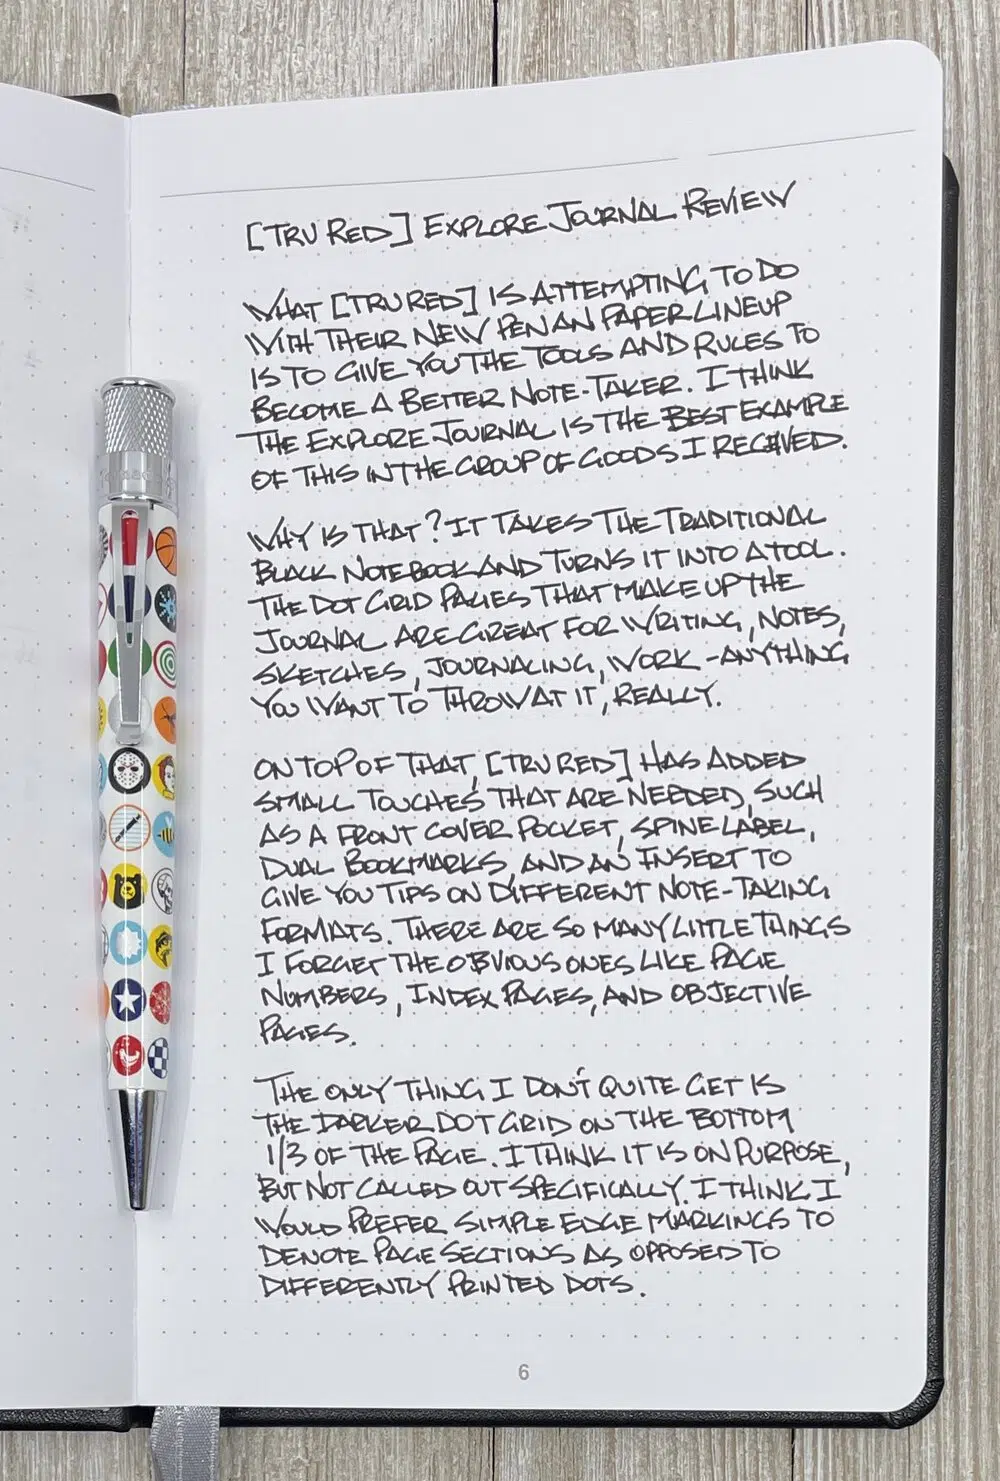 [TRU RED] EXPLORE JOURNAL REVIEW
WHAT [TRU RED] IS ATTEMPTING TO DO
WITH THEIR NEW PEN AN PAPER LINEUP
IS TO GIVE YOU THE TOOLS AND RULES TO
BECOME A BETTER NOTE-TAKER. I THINK
THE EXPLORE JOURNAL IS THE BEST EXAMPLE
OF THIS IN THE GROUP OF GOODS I RECEIVED.
WHY IS THAT? IT TAKES THE TRADITIONAL
BLACK NOTEBOOK AND TURNS IT INTO A TOOL.
THE DOT GRID PAGES THAT MAKE UP THE
JOURNAL ARE GREAT FOR WRITING, NOTES,
SKETCHES, JOURNALING, WORK - ANYTHING
YOU WANT TO THROW AT IT, REALLY.
ON TOP OF THAT, [TRU RED] HAS ADDED
SMALL TOUCHES THAT ARE NEEDED, SUCH
AS A FRONT COVER POCKET, SPINE LABEL,
DUAL BOOKMARKS, AND AN INSERT TO
GIVE YOU TIPS ON DIFFERENT NOTE-TAKING
FORMATS. THERE ARE SO MANY LITTLE THINGS
I FORGET THE OBVIOUS ONES LIKE PAGE
NUMBERS, INDEX PAGES, AND OBJECTIVE
PAGES.
THE ONLY THING I DON'T QUITE GET IS
THE DARKER DOT GRID ON THE BOTTOM
1/3 OF THE PAGE. I THINK IT IS ON PURPOSE,
BUT NOT CALLED OUT SPECIFICALLY. I THINK I
WOULD PREFER SIMPLE EDGE MARKINGS TO
DENOTE PAGE SECTIONS AS OPPOSED TO
DIFFERENTLY PRINTED DOTS.
6